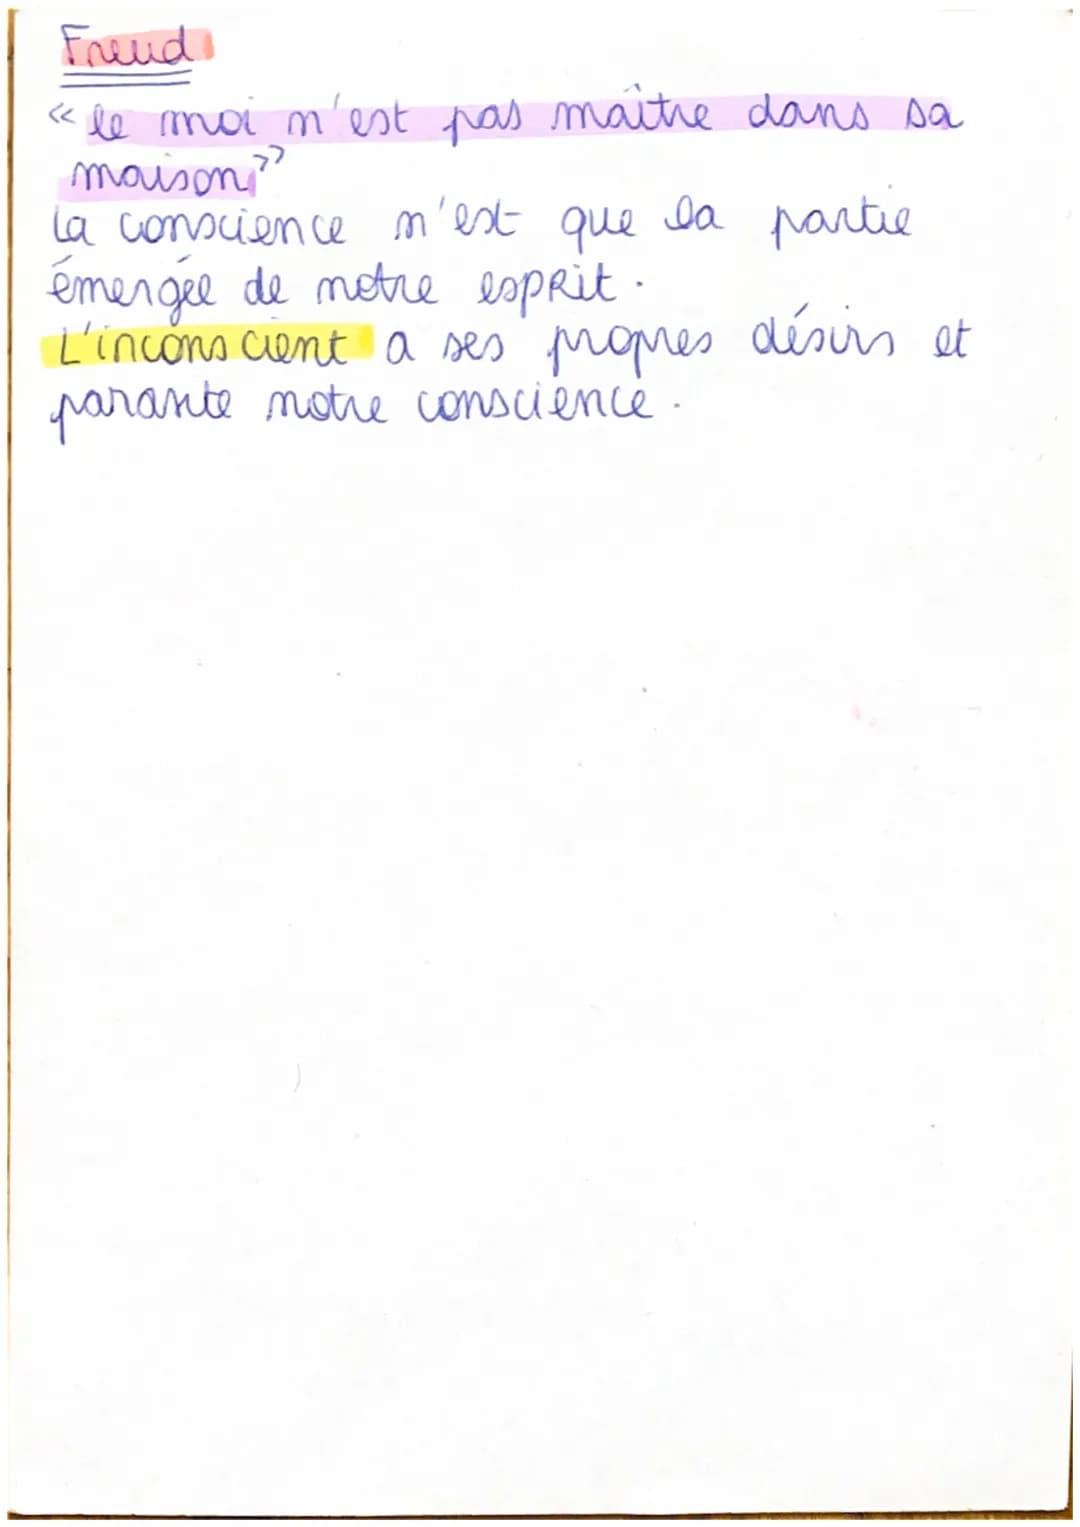 Freud
« le moi n'est pas maître dans sa
maison »
La conscience n'est que la partie
émergée de notre esprit.
L'inconscient a ses propres désirs et
parasite notre conscience.